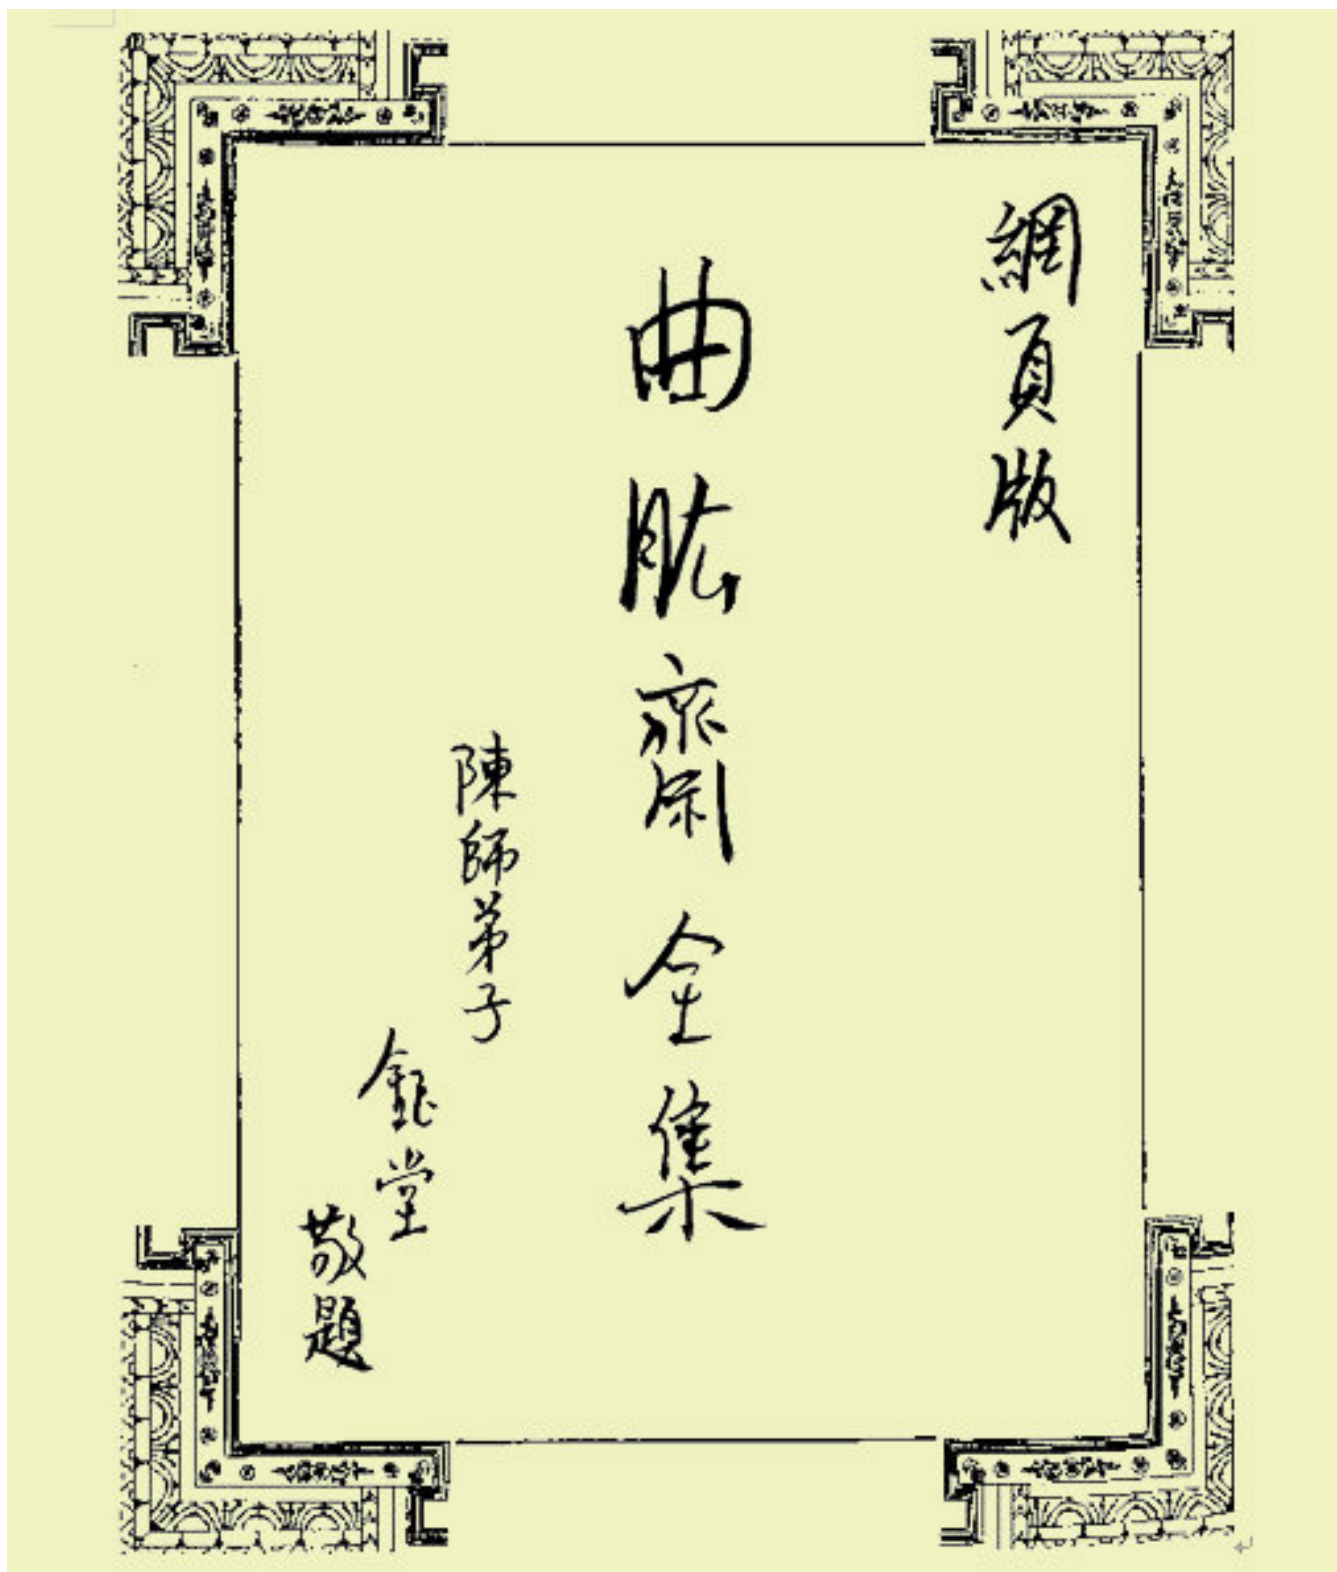 網頁版
曲肱齋全集
陳師弟子
鈺堂
敬題